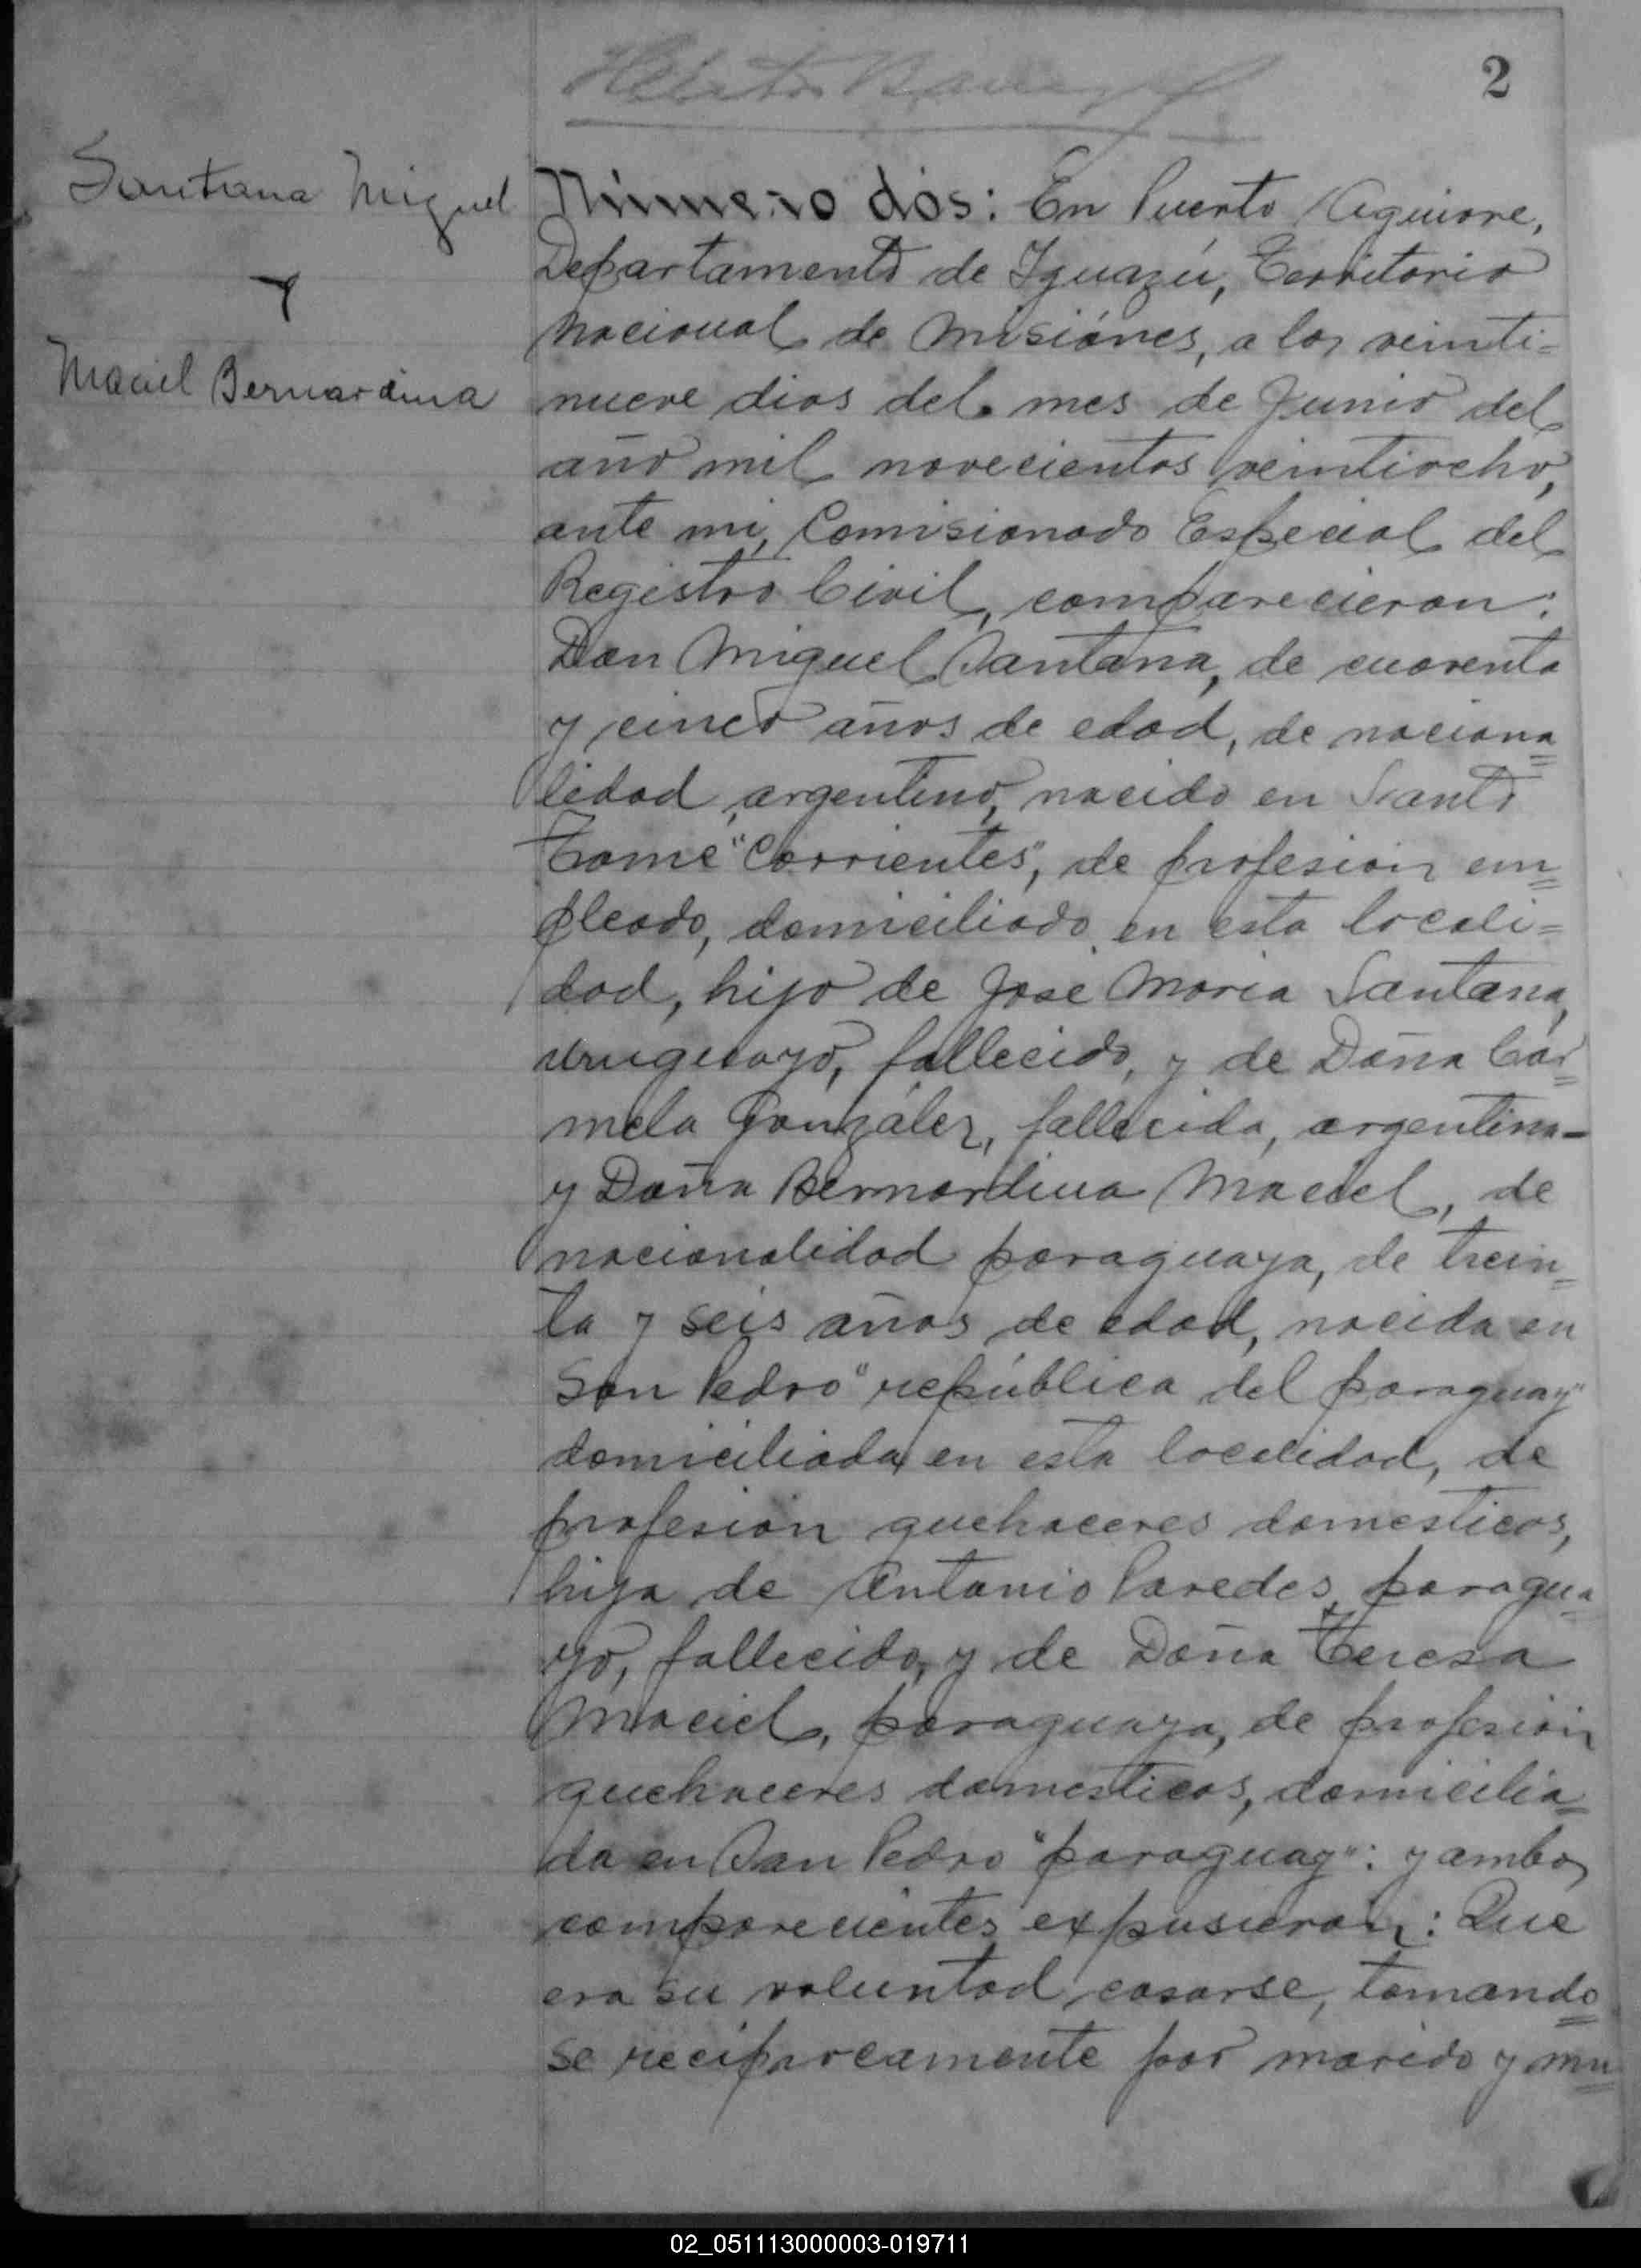 2
Santana Miguel
y
Maciel Bernardina
Número dós: En Puerto Aguirre,
Departamento de Iguazú, Territorio
Nacional de Misiónes, a los veinti=
nueve dias del mes de Junio del
año mil novecientos veintiocho,
ante mi, Comisionado Especial del
Registro Civil, comparecieron:
Don Miguel Santana, de cuarenta
y cinco años de edad, de naciona=
lidad argentino, nacido en Santo
Tomé "Corrientes", de profesión em=
pleado, domiciliado en esta locali=
dad, hijo de José Maria Santana,
uruguayo, fallecido, y de Doña Car=
mela González, fallecida, argentina-
y Doña Bernardina Maciel, de
nacionalidad paraguaya, de trein=
ta y seis años de edad, nacida en
San Pedro "república del paraguay"
domiciliada en esta localidad, de
profesión quehaceres domesticos,
hija de Antonio Paredes, paragua=
yo, fallecido, y de Doña Teresa
Maciel, paraguaya, de profesión
quehaceres domesticos, domicilia=
da en San Pedro "paraguay": y ambos
comparecientes expusieron: Que
era su voluntad casarse, tomando=
se reciprocamente por marido y mu=
02_051113000003-019711